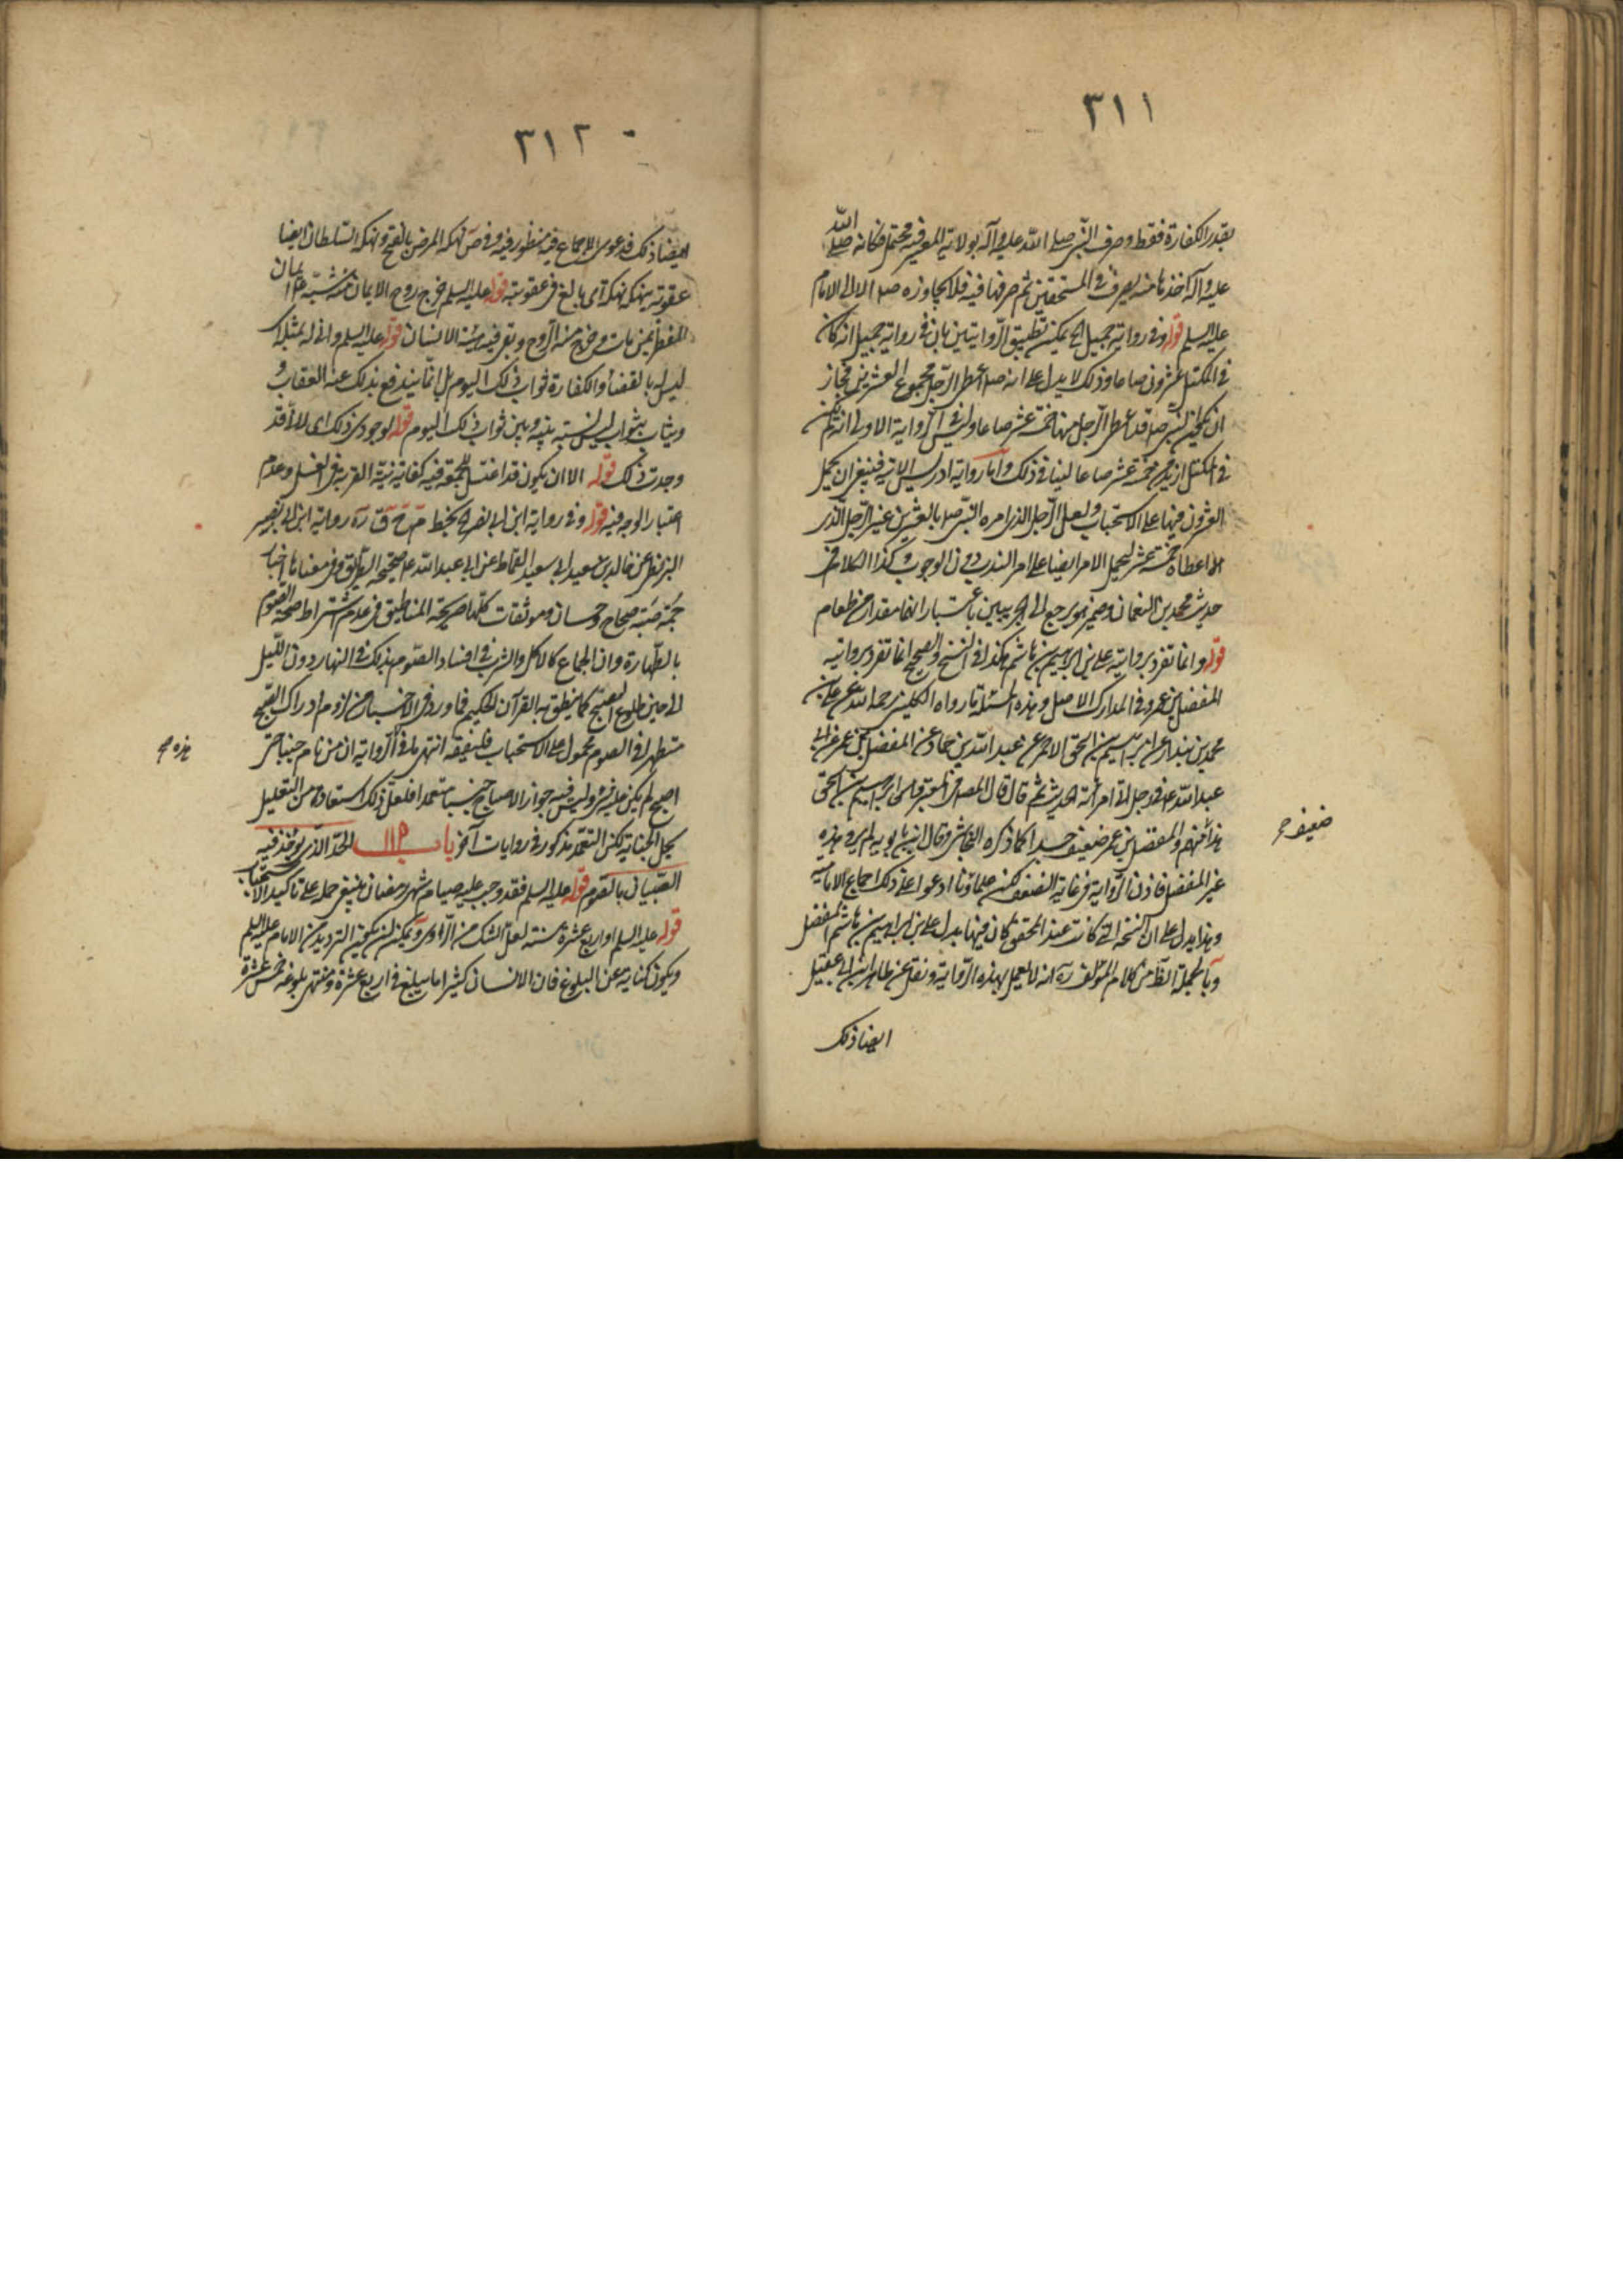 ٣١١
بقدر الكفارة فقط وصرف النبي صلى الله عليه وآله بولايته المعرفية محتمل فكانه صلى الله
عليه وآله اخذها منه ليصرف في المستحقين ثم صرفها فيه فلا يجاوزه الا الى الامام
عليه السلم قوله وفي رواية جميل الخ يمكن تطبيق الروايتين بان في رواية جميل انه كان
في المكتل عشرون صاعا وذلك لا يدل على انه صلى اعطى الرجل مجموع العشرين فجاز
ان يكون النبي ص قد اعطى الرجل منها خمسة عشر صاعا وليس في الرواية الاولى انه لم يكن
في المكتل ازيد من خمسة عشر صاعا لينافي ذلك واما رواية ادريس الاتية فينبغي ان يحمل
العشرون فيها على الاستحباب ولعل الرجل الذي امره النبي صلى بالعشرين غير الرجل الذي
اعطاه خمسة عشر ليحمل الامر ايضا على امر الندب دون الوجوب وكذا الكلام في
حديث محمد بن النعمان وضمير هو يرجع الى الجريبين باعتبار انها مقدار من طعام
قوله وانما تفرد بروايته علي بن ابراهيم بن هاشم هكذا في النسخ والصحيح انما تفرد بروايته
المفضل بن عمر وفي المدارك الاصل في هذه المسئلة ما رواه الكليني رحمه الله عن علي بن
محمد بن بندار عن ابراهيم بن اسحق الاحمر عن عبد الله بن حماد عن المفضل بن عمر عن ابي
عبد الله ع في رجل اتى امرأته الحديث ثم قال قال المصنف في المعتبر قلت ابراهيم بن اسحق
هذا متهم والمفضل بن عمر ضعيف جدا كما ذكره النجاشي وقال ابن بابويه لم يرو هذه
ضعيف
غير المفضل فاذن الرواية في غاية الضعف لكن علماؤنا ادعوا على ذلك اجماع الامامية
وهذا يدل على ان النسخة التي كانت عند المحقق كان فيها بدل علي بن ابراهيم بن هاشم المفضل
وبالجملة الظ من كلام المؤلف ره انه لا يعمل بهذه الرواية ونقل عن ظاهر ابن ابي عقيل
ايضا ذلك
٣١٢
ايضا ذلك فدعوى الاجماع فيه منظور فيه وفي ص نهكه المرض بالفتح ونهكه السلطان ايضا
عقوبة ينهكه نهكة اى بالغ في عقوبته قوله عليه السلم خرج روح الايمان منه شبه الايمان
المفطر بمن مات وخرج منه الروح وبقي فيه هيئة الانسان قوله عليه السلم واني له بمثله اى
ليس له بالقضاء والكفارة ثواب ذلك اليوم بل انما يندفع بذلك عنه العقاب و
ويثاب بثواب ليس نسبة بينه وبين ثواب ذلك اليوم قوله لوجودى ذلك اى لانى قد
وجدت ذلك قوله الا ان يكون قد اغتسل للجمعة فيه كفاية نية القربة في الغسل وعدم
اعتبار الوجه فيه قوله وفي رواية ابن ابي نصر الخ بخط م ح ق ره رواية ابن ابي نصر
البزنطي عن خالد بن سعيد ابي سعيد القماط عن ابي عبد الله ع صحيحة الطريق وفي معناها اخبار
جمة صحاح وحسان وموثقات كلها صريحة المناطيق في عدم اشتراط صحة الصوم
بالطهارة وان الجماع كالاكل والشرب في افساد الصوم بذلك في النهار دون الليل
الى حين طلوع الصبح كما ينطق به القرآن الحكيم فما ورد في الاخبار من لزوم ادراك الصبح
متطهرا في الصوم محمول على الاستحباب فليفقه انتهى ما في الرواية ان من نام جنبا حتى
هذه
اصبح لم يكن عليه شئ وليس فيه جواز الاصباح جنبا متعمدا فلعل ذلك استفاده من التعليل
بحل الجنابة لكن التعمد مذكور في روايات آخر باب الحد الذى يؤخذ فيه
الصبيان بالصوم قوله عليه السلم فقد وجب عليه صيام شهر رمضان ينبغي حمله على تاكيد الاستحباب
قوله عليه السلم او اربع عشرة سنة لعل الشك من الراوى ويمكن ان يكون الترديد من الامام عليه السلم
ويكون كناية عن البلوغ فان الانسان كثيرا ما يبلغ في اربع عشرة ومنتهى بلوغه خمس عشرة